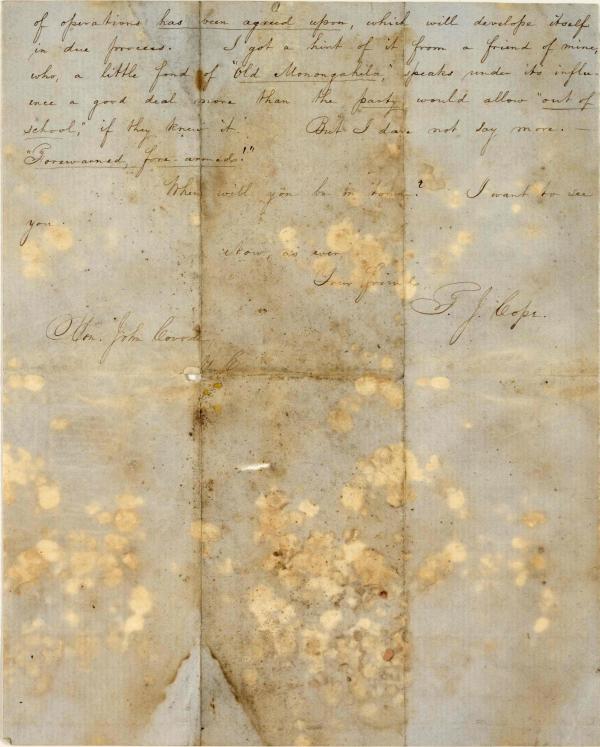 of operations has been agreed upon, which will develope itself
in due process. I got a hint of it from a friend of mine,
who, a little fond of "Old Monongahila," speaks under its influ-
ence a good deal more than the party would allow "out of
school," if they knew it. But I dare not say more. —
"Forewarned, fore-armed!"
When will you be in town? I want to see
you.
Now, as ever
Your friend,
T. J. Cope.
Hon. John Covode